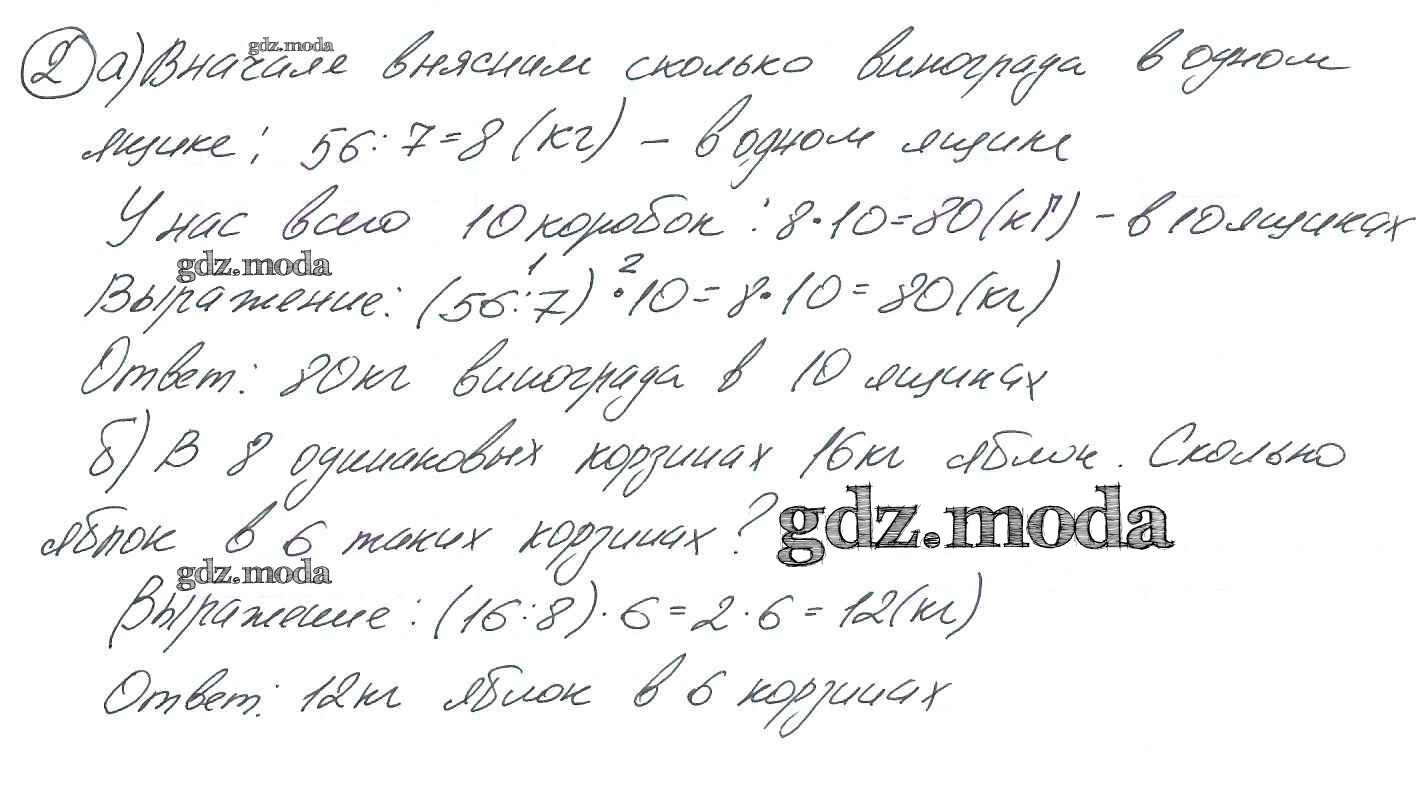 gdz.moda
2 а) Вначале выясним сколько винограда в одном
ящике: 56:7=8 (кг) – в одном ящике
У нас всего 10 коробок: 8·10=80(кг) – в 10 ящиках
gdz.moda
1 2
Выражение: (56:7)·10=8·10=80(кг)
Ответ: 80кг винограда в 10 ящиках
б) В 8 одинаковых корзинах 16кг яблок. Сколько
яблок в 6 таких корзинах?
gdz.moda
gdz.moda
Выражение: (16:8)·6=2·6=12(кг)
Ответ: 12кг яблок в 6 корзинах